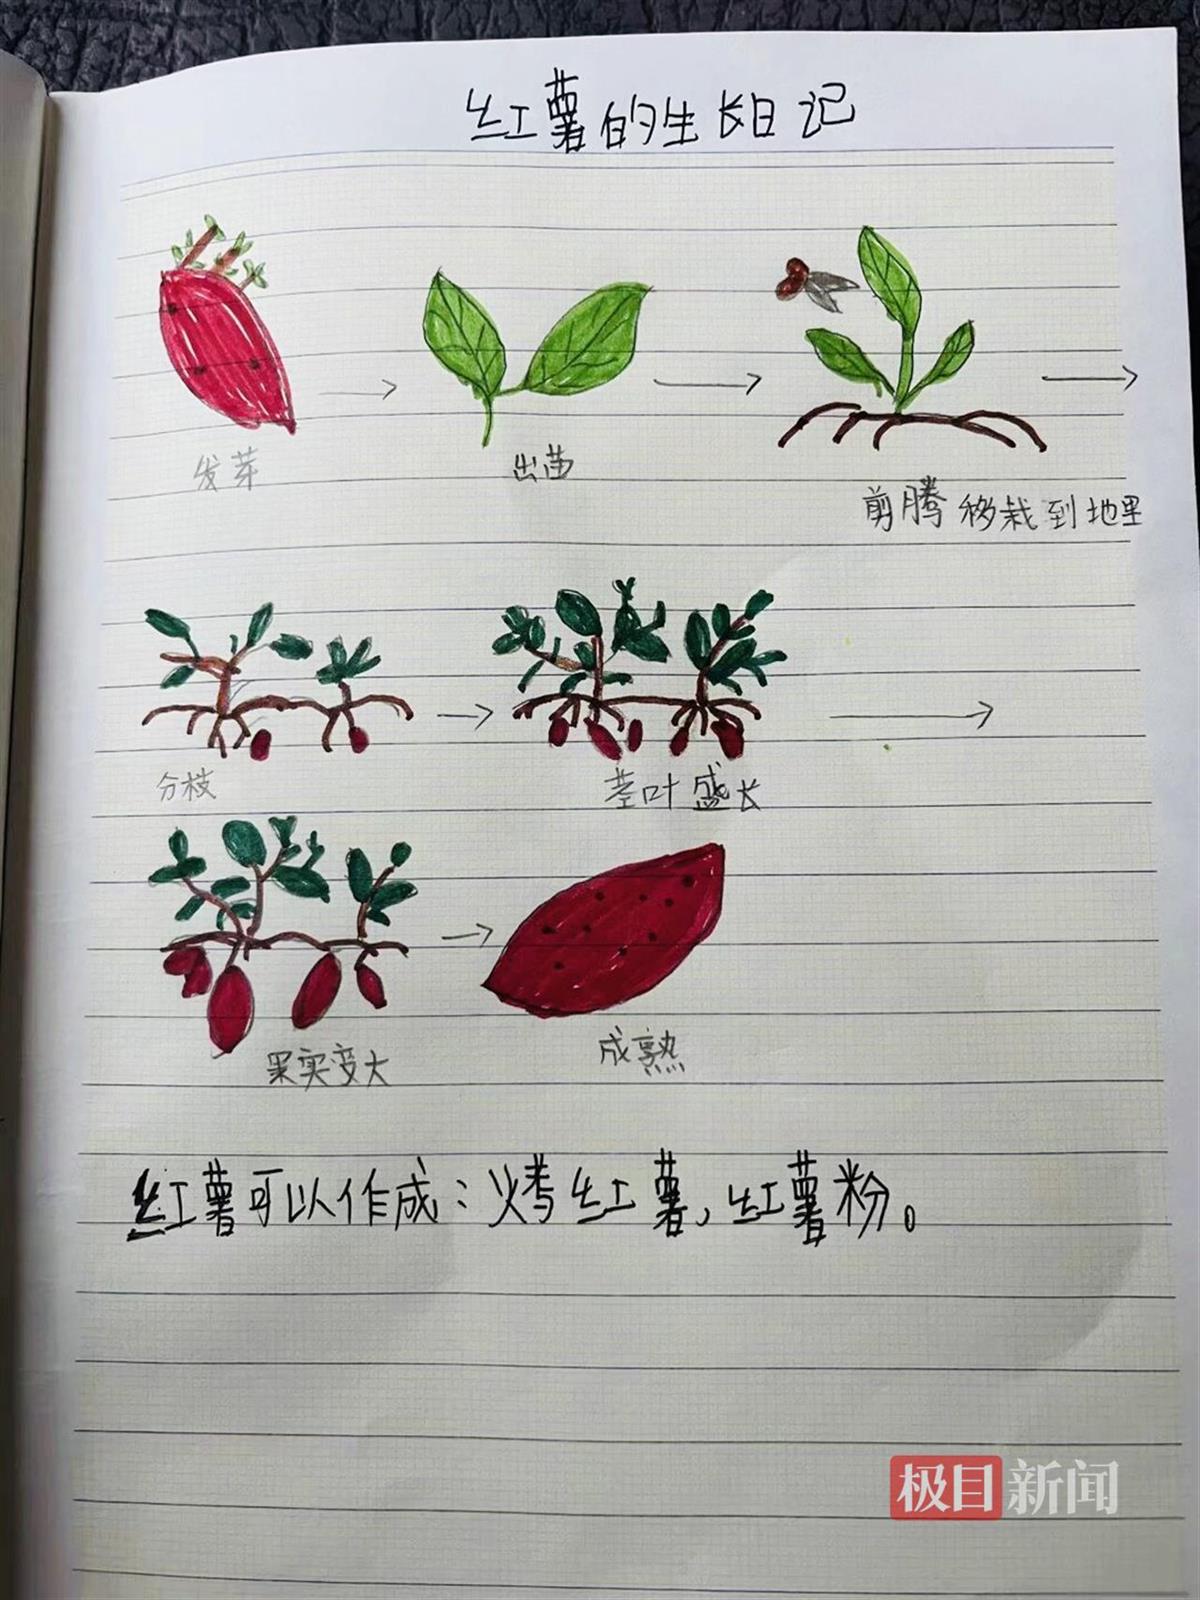 红薯的生长日记
发芽
出苗
剪腾移栽到地里
分枝
茎叶盛长
果实变大
成熟
红薯可以作成:烤红薯,红薯粉。
极目新闻